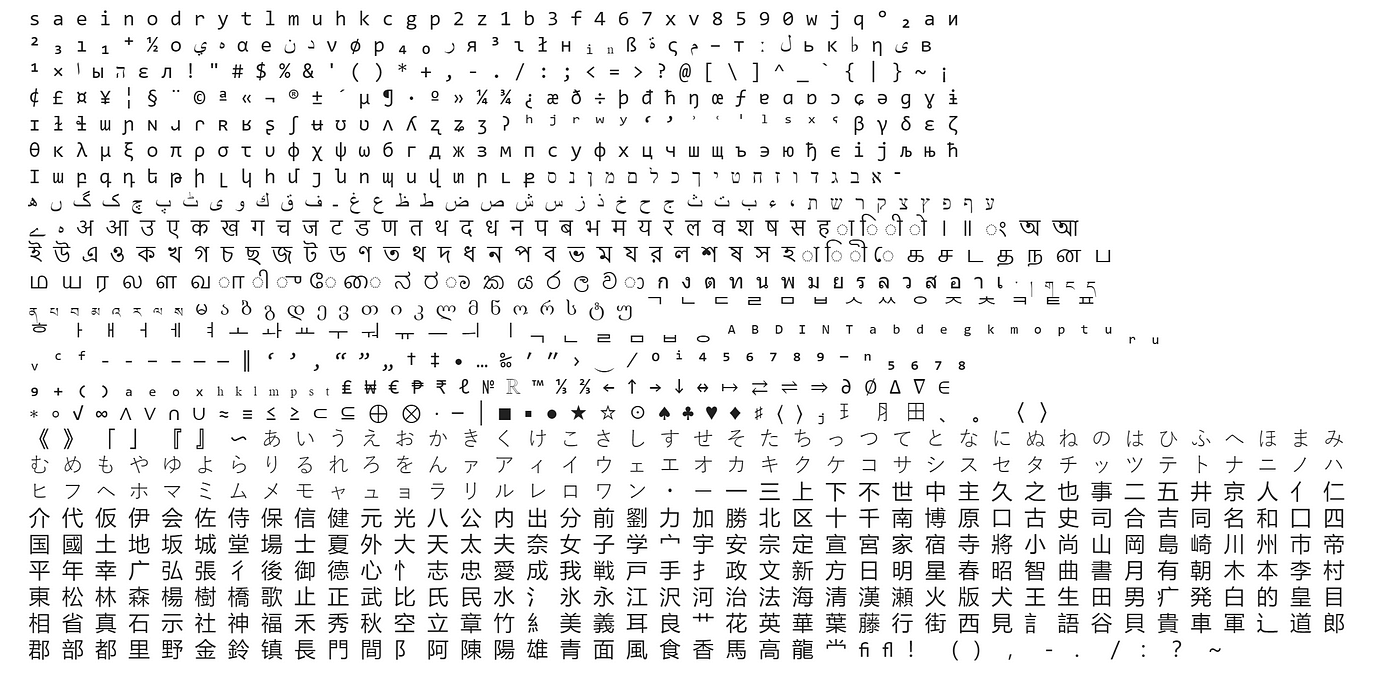 s a e i n o d r y t l m u h k c g p 2 z 1 b 3 f 4 6 7 x v 8 5 9 0 w j q ° ₂ а и
² ₃ ı ₁ ⁺ ½ о ي ه α е ن د ν ø р ₄ ₀ ر я ³ ɩ ł н ᵢ ₙ ß ة ς م – т : ل ь к ♭ η ی в
¹ × ا ы ה ε л ! " # $ % & ' ( ) * + , - . / : ; < = > ? @ [ \ ] ^ _ ` { | } ~ ¡
¢ £ ¤ ¥ ¦ § ¨ © ª « ¬ ® ± ´ µ ¶ · º » ¼ ¾ ¿ æ ð ÷ þ đ ħ ŋ œ ƒ ɐ ɑ ɒ ɔ ɕ ə ɡ ɣ ɨ
ɪ ɫ ɬ ɯ ɲ ɴ ɹ ɾ ʀ ʁ ʂ ʃ ʉ ʊ ʋ ʌ ʎ ʐ ʑ ʒ ʔ ʰ ʲ ʳ ʷ ʸ ʻ ʼ ʾ ʿ ˈ ˡ ˢ ˣ ˤ β γ δ ε ζ
θ κ λ μ ξ ο π ρ σ τ υ φ χ ψ ω б г д ж з м п с у ф х ц ч ш щ ъ э ю ђ є і ј љ њ ћ
Ӏ ա բ գ դ ե թ ի լ կ հ մ յ ն ո պ ս վ տ ր ւ ք א ב ג ד ו ז ח ט י ך כ ל ם מ ן נ ס ־
ع ف پ چ ک گ ں ھ ٹ ی و ك ق ف ـ غ ع ظ ط ض ص ش س ز ذ خ ح ج ث ت ب ء ، ת ש ר ק צ ץ פ ף ע
ہ ے अ आ उ ए क ख ग च ज ट ड ण त थ द ध न प ब भ म य र ल व श ष स ह ा ि ी ो । ॥ ং অ আ
ই উ এ ও ক খ গ চ ছ জ ট ড ণ ত থ দ ধ ন প ব ভ ম য র ল শ ষ স হ া ি ী ে க ச ட த ந ன ப
ம ய ர ல ள வ ா ி ு ே ை ನ ರ ಾ ක ය ර ල ව ා ก ง ต ท น พ ม ย ร ล ว ส อ า เ ་ ། ག ང ད
ན པ བ མ འ ར ལ ས မ ა ბ გ დ ე ვ თ ი კ ლ მ ნ ო რ ს ტ უ ᄀ ᄂ ᄃ ᄅ ᄆ ᄇ ᄉ ᄊ ᄋ ᄌ ᄎ ᄏ ᄐ ᄑ
ᄒ ᅡ ᅢ ᅥ ᅦ ᅧ ᅩ ᅪ ᅭ ᅮ ᅯ ᅲ ᅳ ᅴ ᅵ ᆨ ᆫ ᆯ ᆷ ᆸ ᆼ ᴬ ᴮ ᴰ ᴵ ᴺ ᵀ ᵃ ᵇ ᵈ ᵉ ᵍ ᵏ ᵐ ᵒ ᵖ ᵗ ᵘ ᵣ ᵤ
ᵥ ᶜ ᶠ ‐ ‑ ‒ – — ― ‖ ‘ ’ ‚ “ ” „ † ‡ • … ‰ ′ ″ › ‿ ⁄ ⁰ ⁱ ⁴ ⁵ ⁶ ⁷ ⁸ ⁹ ⁻ ⁿ ₅ ₆ ₇ ₈
₉ ₊ ₍ ₎ ₐ ₑ ₒ ₓ ₕ ₖ ₗ ₘ ₚ ₛ ₜ ₤ ₩ € ₱ ₹ ℓ № ℝ ™ ⅓ ⅔ ← ↑ → ↓ ↔ ↦ ⇄ ⇌ ⇒ ∂ ∅ ∆ ∇ ∈
∗ ∘ √ ∞ ∧ ∨ ∩ ∪ ≈ ≡ ≤ ≥ ⊂ ⊆ ⊕ ⊗ ⋅ ─ │ ■ ▪ ● ★ ☆ ☉ ♠ ♣ ♥ ♦ ♯ ⟨ ⟩ ⱼ ⺩ ⺼ ⽥ 、 。 〈 〉
《 》 「 」 『 』 〜 あ い う え お か き く け こ さ し す せ そ た ち っ つ て と な に ぬ ね の は ひ ふ へ ほ ま み
む め も や ゆ よ ら り る れ ろ を ん ァ ア ィ イ ウ ェ エ オ カ キ ク ケ コ サ シ ス セ タ チ ッ ツ テ ト ナ ニ ノ ハ
ヒ フ ヘ ホ マ ミ ム メ モ ャ ュ ョ ラ リ ル レ ロ ワ ン ・ ー 一 三 上 下 不 世 中 主 久 之 也 事 二 五 井 京 人 亻 仁
介 代 仮 伊 会 佐 侍 保 信 健 元 光 八 公 内 出 分 前 劉 力 加 勝 北 区 十 千 南 博 原 口 古 史 司 合 吉 同 名 和 囗 四
国 國 土 地 坂 城 堂 場 士 夏 外 大 天 太 夫 奈 女 子 学 宀 宇 安 宗 定 宣 宮 家 宿 寺 將 小 尚 山 岡 島 崎 川 州 市 帝
平 年 幸 广 弘 張 彳 後 御 德 心 忄 志 忠 愛 成 我 戦 戸 手 扌 政 文 新 方 日 明 星 春 昭 智 曲 書 月 有 朝 木 本 李 村
東 松 林 森 楊 樹 橋 歌 止 正 武 比 氏 民 水 氵 氷 永 江 沢 河 治 法 海 清 漢 瀬 火 版 犬 王 生 田 男 疒 発 白 的 皇 目
相 省 真 石 示 社 神 福 禾 秀 秋 空 立 章 竹 糹 美 義 耳 良 艹 花 英 華 葉 藤 行 街 西 見 訁 語 谷 貝 貴 車 軍 辶 道 郎
郡 部 都 里 野 金 鈴 镇 長 門 間 阝 阿 陳 陽 雄 青 面 風 食 香 馬 高 龍 龸 ﬁ ﬂ ！ （ ） ， － ． ／ ： ？ ～